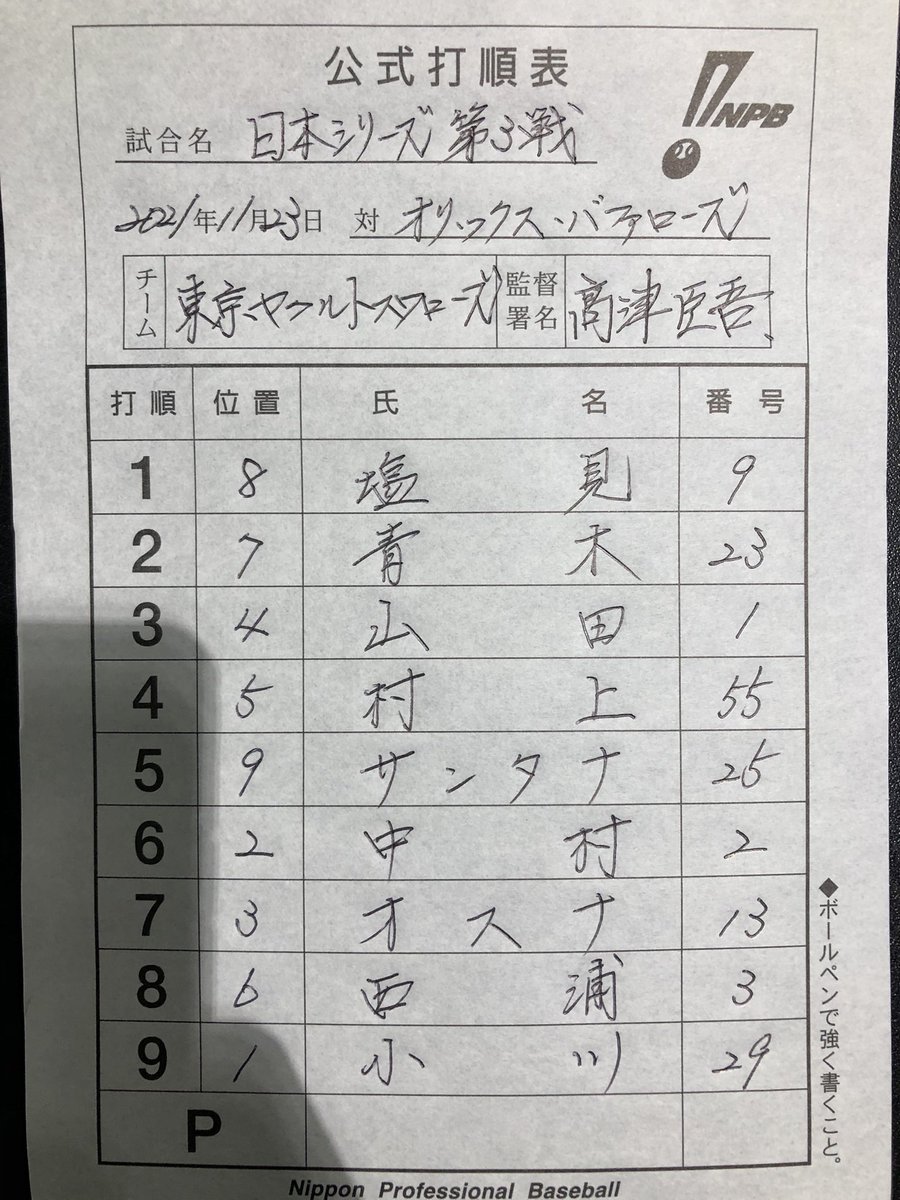 公式打順表
NPB
試合名 日本シリーズ第3戦
2021年11月23日 対 オリックス・バファローズ
チーム 東京ヤクルトスワローズ 監督署名 高津臣吾
打順 位置 氏名 番号
1 8 塩見 9
2 7 青木 23
3 4 山田 1
4 5 村上 55
5 9 サンタナ 25
6 2 中村 2
7 3 オスナ 13
8 6 西浦 3
9 1 小川 29
P
◆ボールペンで強く書くこと。
Nippon Professional Baseball